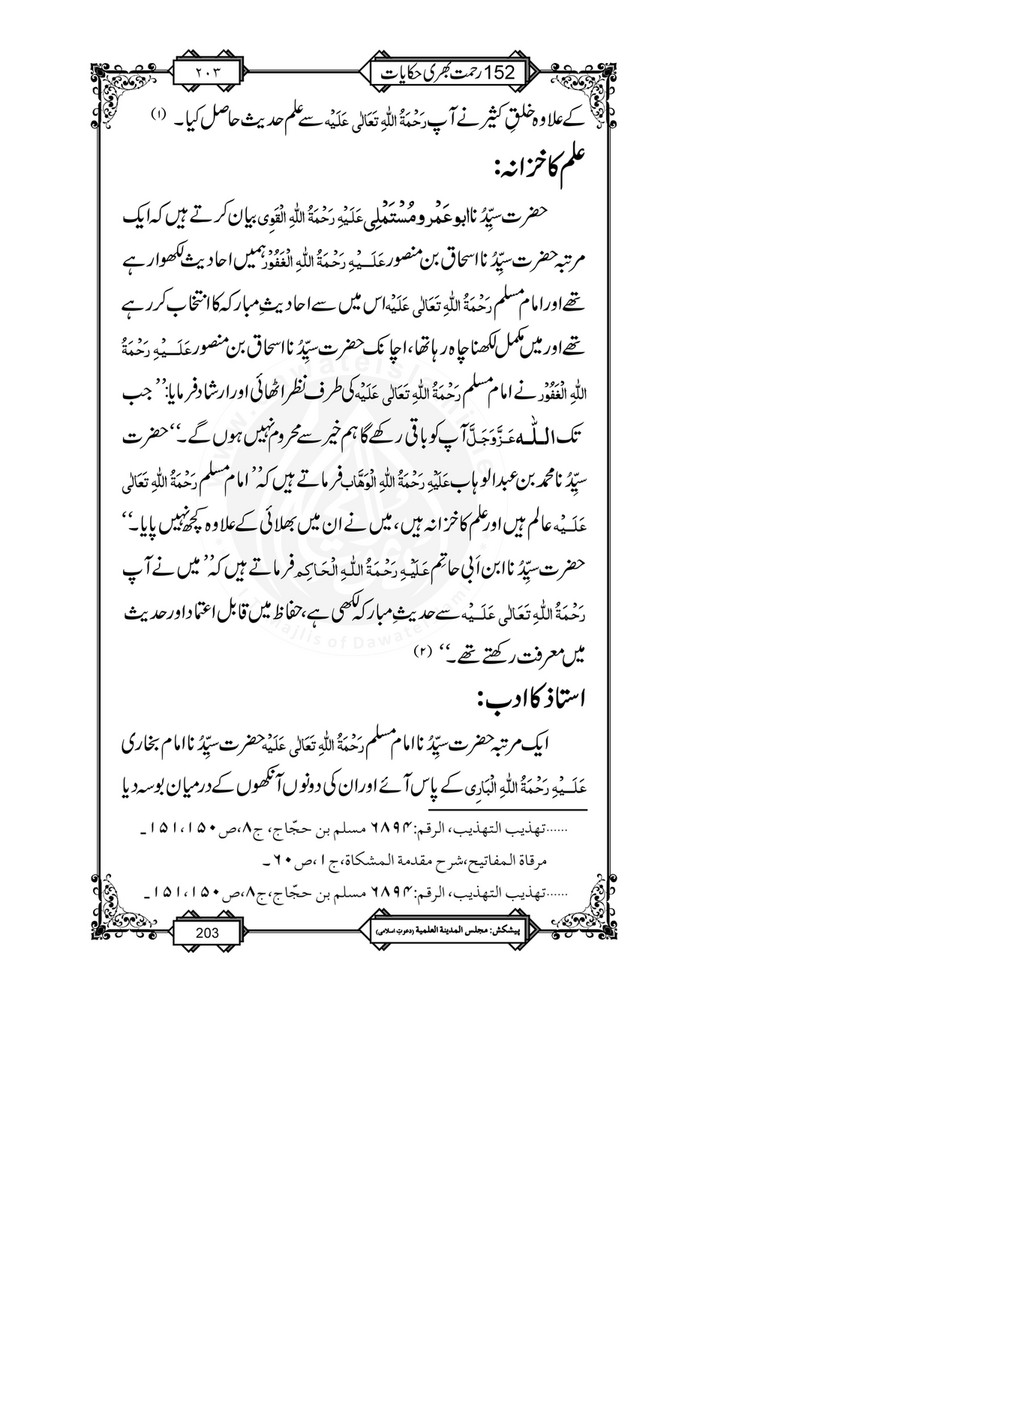 152 رحمت بھری حکایات
۲۰۳
کے علاوہ خلقِ کثیر نے آپ رَحْمَةُ اللّٰهِ تَعَالٰی عَلَيْه سے علم حدیث حاصل کیا۔ (۱)
علم کا خزانہ:
حضرت سیِّدُنا ابو عَمْرو مُسْتَمْلِی عَلَيْهِ رَحْمَةُ اللّٰهِ الْقَوِی بیان کرتے ہیں کہ ایک
مرتبہ حضرت سیِّدُنا اسحاق بن منصور عَلَيْهِ رَحْمَةُ اللّٰهِ الْغَفُوْر ہمیں احادیث لکھوا رہے
تھے اور امام مسلم رَحْمَةُ اللّٰهِ تَعَالٰی عَلَيْه اس میں سے احادیثِ مبارکہ کا انتخاب کر رہے
تھے اور میں مکمل لکھنا چاہ رہا تھا، اچانک حضرت سیِّدُنا اسحاق بن منصور عَلَيْهِ رَحْمَةُ
اللّٰهِ الْغَفُوْر نے امام مسلم رَحْمَةُ اللّٰهِ تَعَالٰی عَلَيْه کی طرف نظر اٹھائی اور ارشاد فرمایا: ’’جب
تک اللّٰه عَزَّوَجَلَّ آپ کو باقی رکھے گا ہم خیر سے محروم نہیں ہوں گے۔‘‘ حضرت
سیِّدُنا محمد بن عبدالوہاب عَلَيْهِ رَحْمَةُ اللّٰهِ الْوَهَّاب فرماتے ہیں کہ ’’امام مسلم رَحْمَةُ اللّٰهِ تَعَالٰی
عَلَيْه عالم ہیں اور علم کا خزانہ ہیں، میں نے ان میں بھلائی کے علاوہ کچھ نہیں پایا۔‘‘
حضرت سیِّدُنا ابن اَبی حاتِم عَلَيْهِ رَحْمَةُ اللّٰهِ الْحَاكِم فرماتے ہیں کہ ’’میں نے آپ
رَحْمَةُ اللّٰهِ تَعَالٰی عَلَيْه سے حدیثِ مبارکہ لکھی ہے، حفاظ میں قابل اعتماد اور حدیث
میں معرفت رکھتے تھے۔‘‘ (۲)
استاذ کا ادب:
ایک مرتبہ حضرت سیِّدُنا امام مسلم رَحْمَةُ اللّٰهِ تَعَالٰی عَلَيْه حضرت سیِّدُنا امام بخاری
عَلَيْهِ رَحْمَةُ اللّٰهِ الْبَارِی کے پاس آئے اور ان کی دونوں آنکھوں کے درمیان بوسہ دیا
......تهذيب التهذيب، الرقم: ۶۸۹۴ مسلم بن حجّاج، ج۸، ص ۱۵۰، ۱۵۱۔
مرقاة المفاتيح، شرح مقدمة المشكاة، ج۱، ص ۶۰۔
......تهذيب التهذيب، الرقم: ۶۸۹۴ مسلم بن حجّاج، ج۸، ص ۱۵۰، ۱۵۱۔
پیشکش: مجلس المدینۃ العلمیۃ (دعوتِ اسلامی)
203